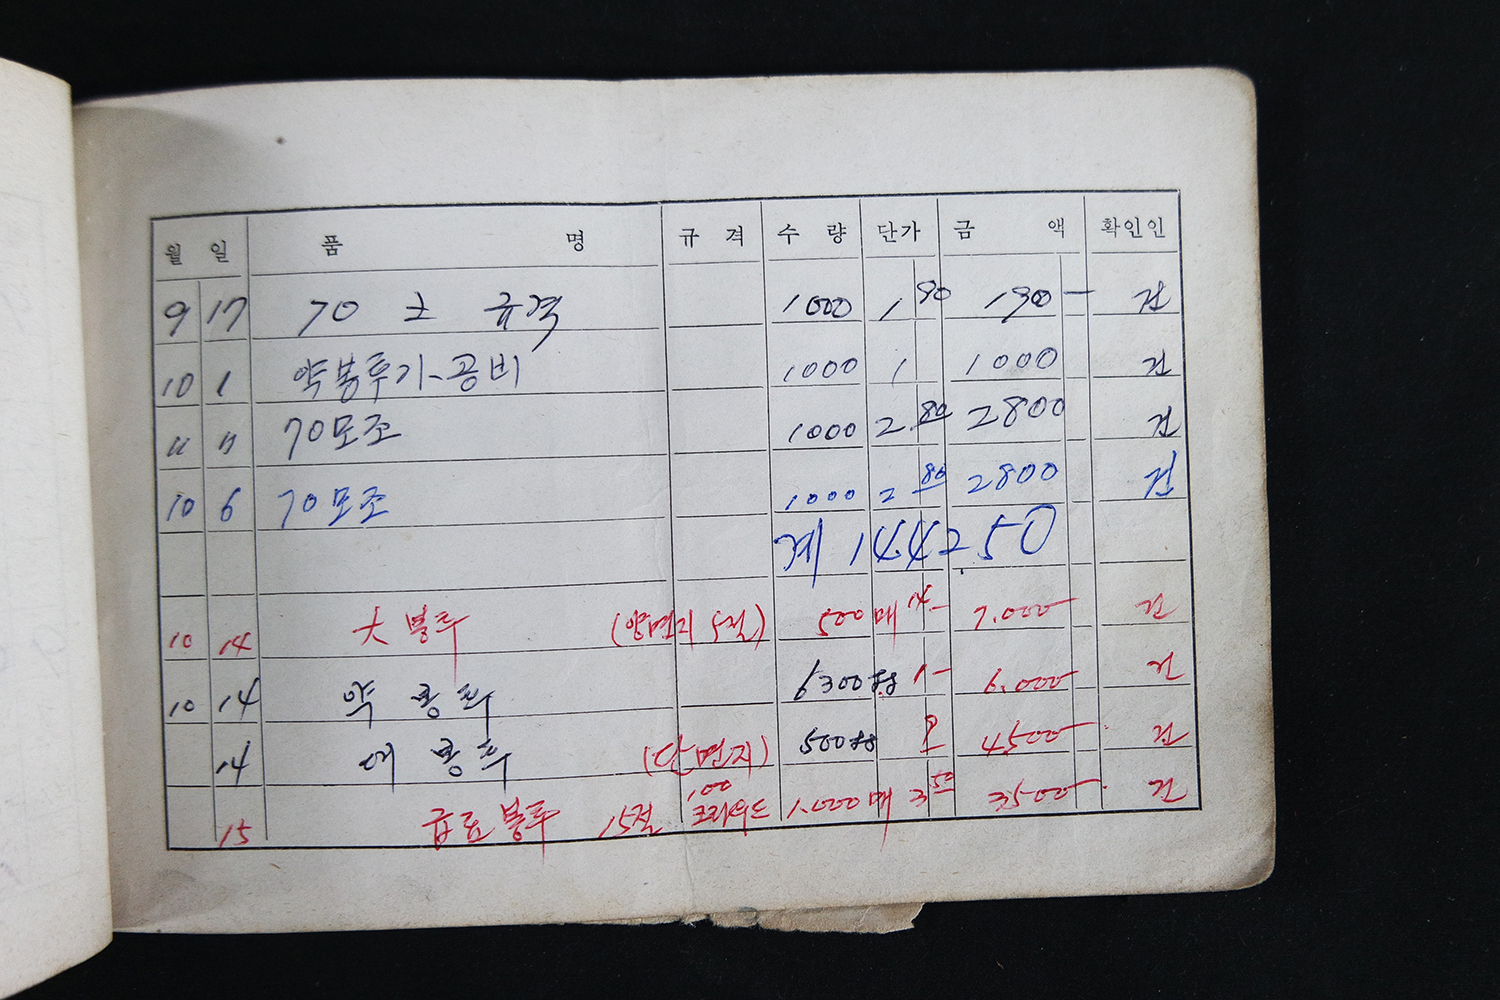 월 일 품 명 규 격 수 량 단가 금 액 확인인
9 17 70 모 규격 1000 1 90 1900 —
10 1 약봉투가공비 1000 1 1000
〃 〃 70모조 1000 2.80 2800
10 6 70모조 1000 2 80 2800
계 144250
10 14 大봉투 (양면지 5절) 500매 14- 7.000-
10 14 약 봉투 6300 1- 6.000-
14 봉투 (단면지) 500 4500-
15 급료봉투 15절 1.000매 3 50 3500-